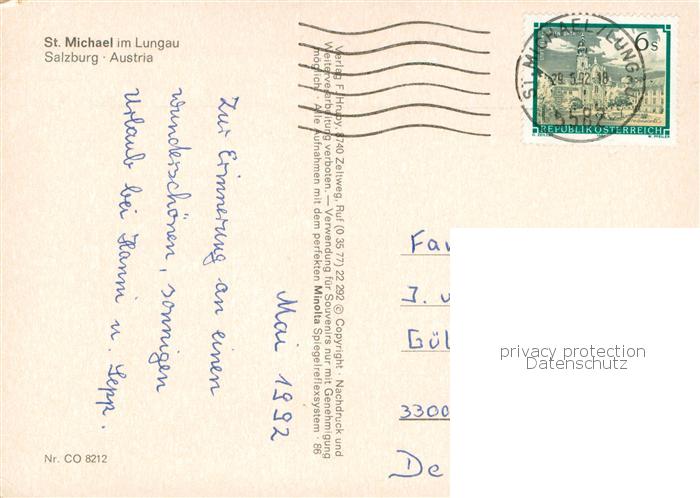 St. Michael im Lungau
Salzburg · Austria
Mai 1992
Zur Erinnerung an einen
wunderschönen, sonnigen
Urlaub bei Hanni u. Sepp.
Verlag F. Hruby, 8740 Zeltweg, Ruf (0 35 77) 22 292 © Copyright · Nachdruck und
Weiterverarbeitung verboten. — Verwendung für Souvenirs nur mit Genehmigung
möglich! · Alle Aufnahmen mit dem perfekten Minolta Spiegelreflexsystem · 86
6 s
REPUBLIK ÖSTERREICH
ST. MICHAEL / LUNGAU
5582
Fa
J. u
Gül
3300
De
privacy protection
Datenschutz
Nr. CO 8212